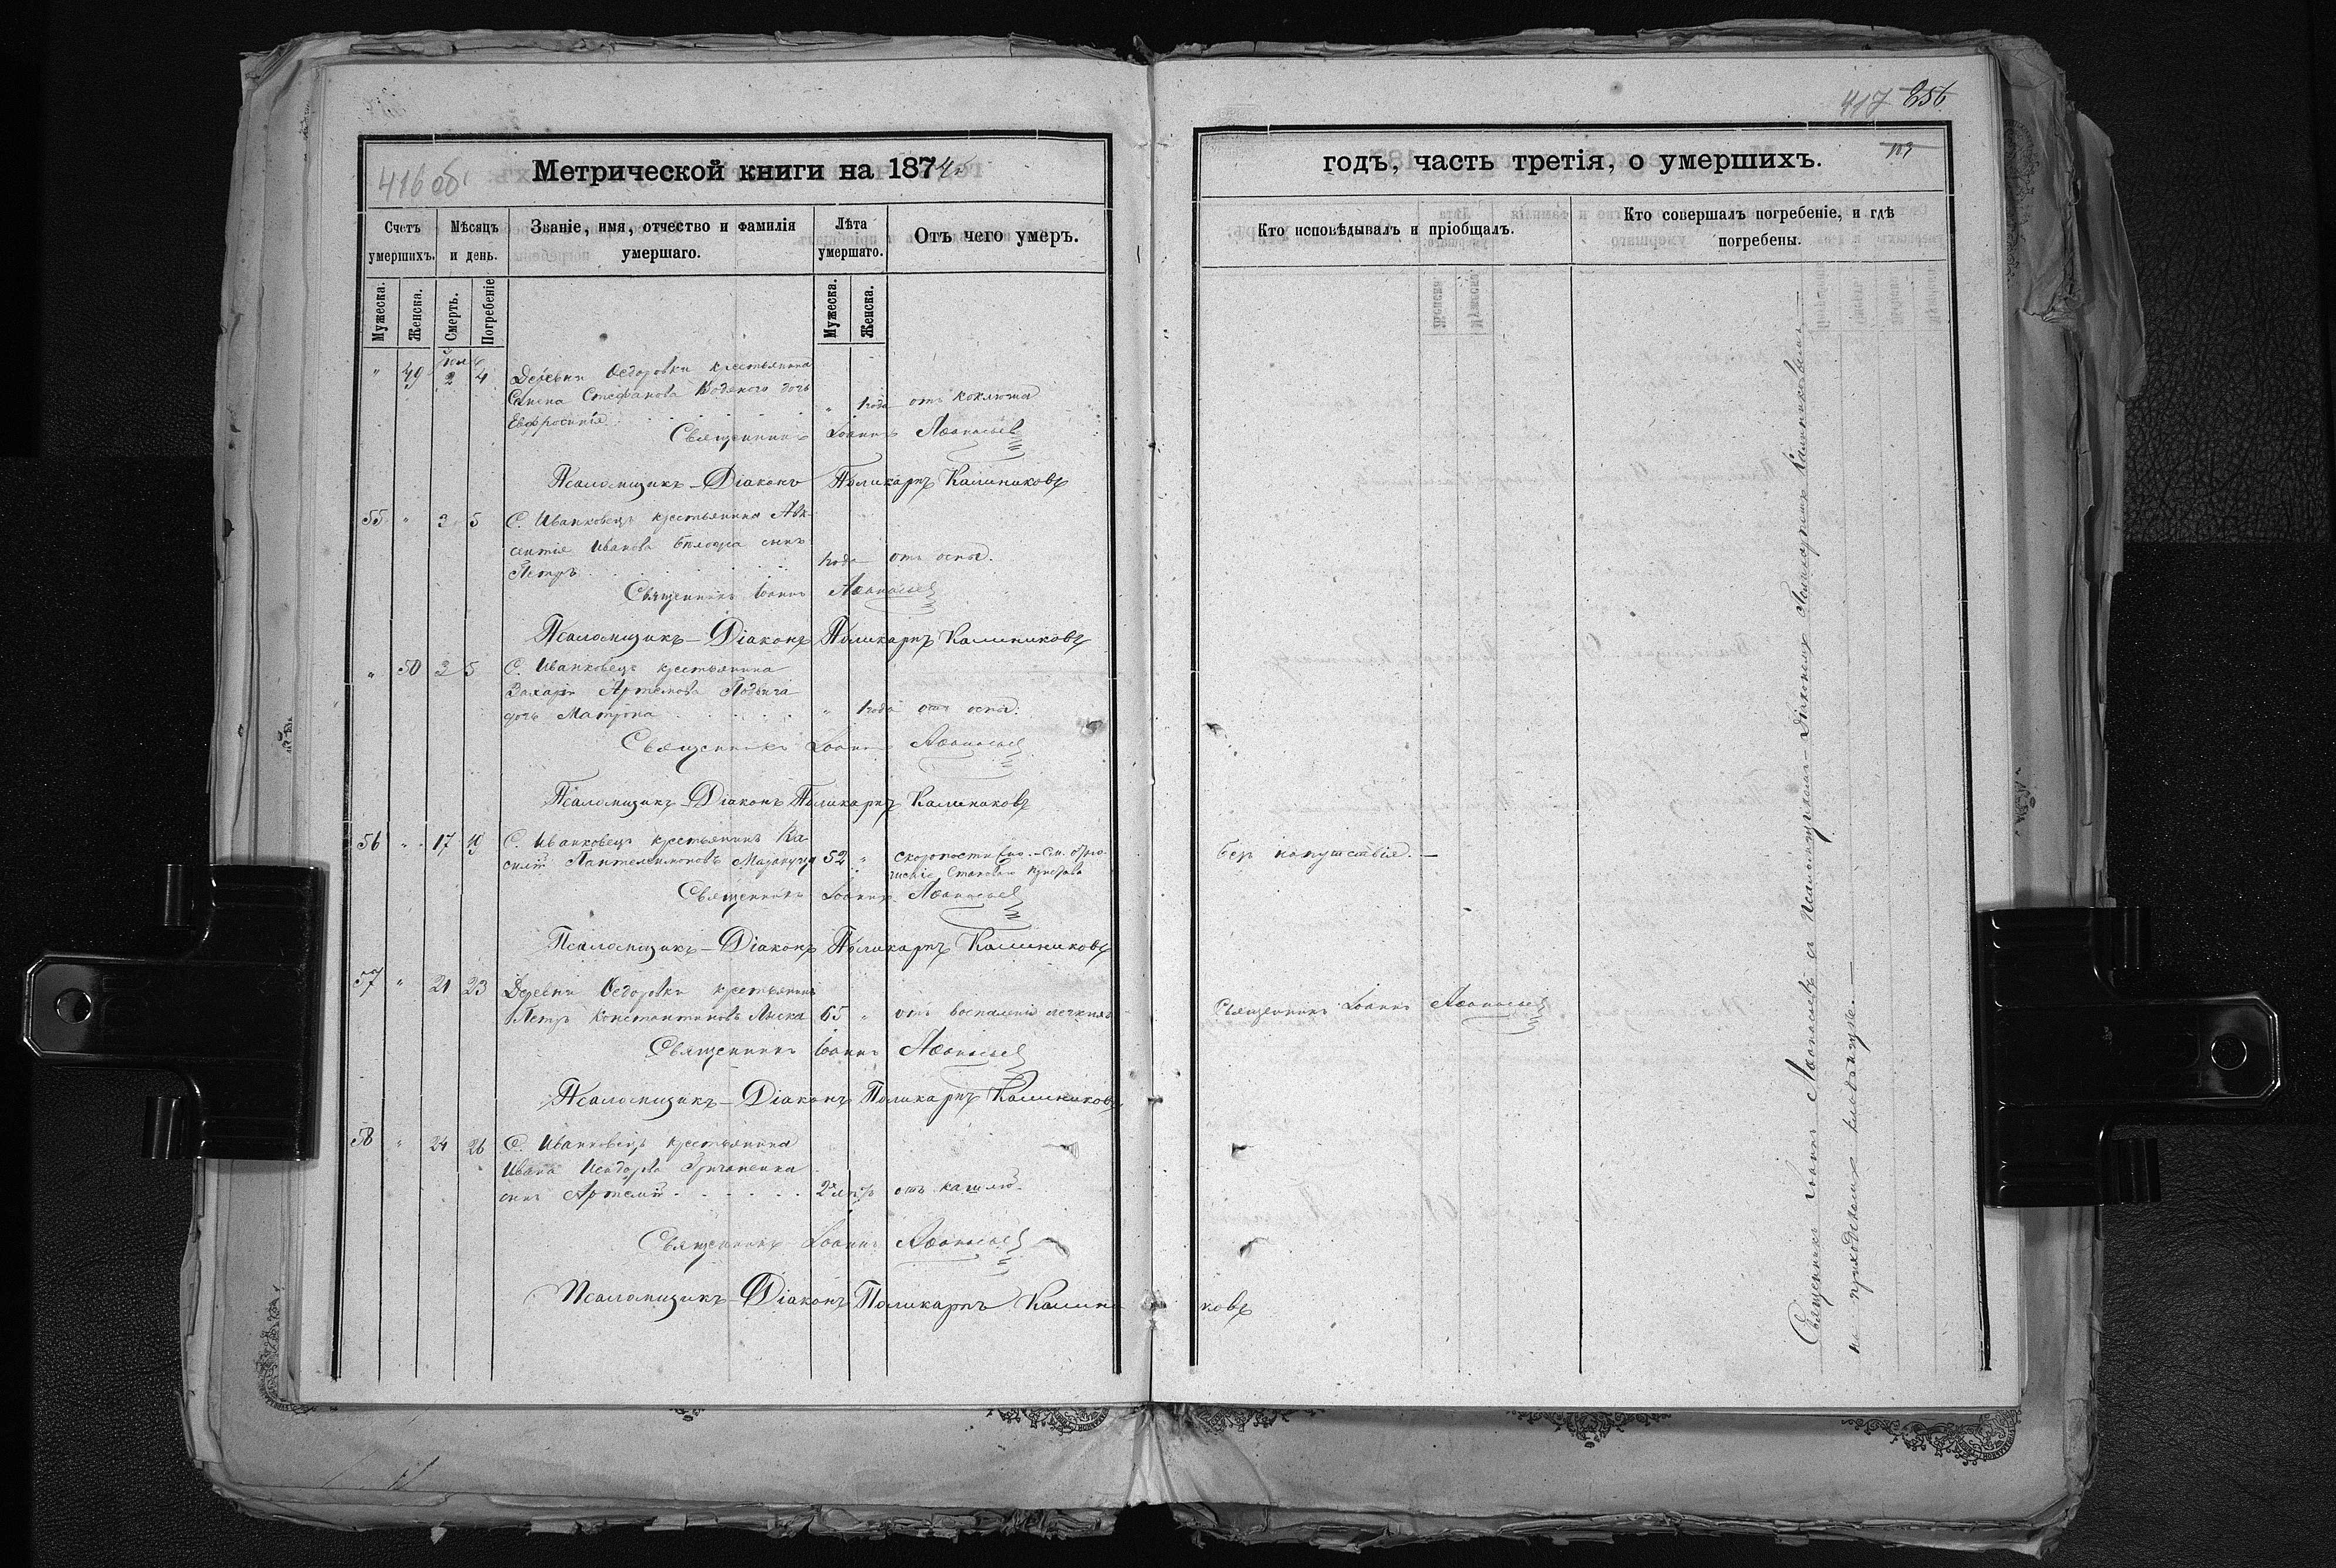 416 об
Метрической книги на 1874
Счетъ умершихъ.
Мѣсяцъ и день.
Званіе, имя, отчество и фамилія умершаго.
Лѣта умершаго.
Отъ чего умеръ.
Мужеска.
Женска.
Смерть.
Погребеніе
Мужеска.
Женска.
" 49 2 4 Деревни Федоровки крестьянина
Стефанова дочь
Евфросинія " 1 года отъ коклюша
Священникъ Іоаннъ Аѳанасьев
Псаломщикъ-Діаконъ Поликарпъ Калиниковъ
55 " 3 5 С. Иванковецъ крестьянина Авк-
сентія Иванова сынъ
Петръ 1 года отъ оспы.
Священникъ Іоаннъ Аѳанасьев
Псаломщикъ-Діаконъ Поликарпъ Калиниковъ
" 50 3 5 С. Иванковецъ крестьянина
Захаріи Артемова
дочь Матрона " 1 года отъ оспы.
Священникъ Іоаннъ Аѳанасьев
Псаломщикъ-Діаконъ Поликарпъ Калиниковъ
56 " 17 19 С. Иванковецъ крестьянинъ Ва-
силій Пантелеимоновъ 52 " скоропостижно.
Священникъ Іоаннъ Аѳанасьев
Псаломщикъ-Діаконъ Поликарпъ Калиниковъ
57 " 21 23 Деревни Федоровки крестьянинъ
Петръ Константиновъ 65 " отъ воспаленія легкихъ
Священникъ Іоаннъ Аѳанасьев
Псаломщикъ-Діаконъ Поликарпъ Калиниковъ
58 " 24 26 С. Иванковецъ крестьянина
Ивана Исидорова
сынъ Артемій 2 отъ кашлю.
Священникъ Іоаннъ Аѳанасьев
Псаломщикъ-Діаконъ Поликарпъ Калини
417 256
103
годъ, часть третія, о умершихъ.
Кто исповѣдывалъ и пріобщалъ.
Кто совершалъ погребеніе, и гдѣ погребены.
без напутствія.
Священникъ Іоаннъ Аѳанасьев
ковъ
Священникъ Іоаннъ Аѳанасьевъ съ Псаломщикомъ-Діакономъ Поликарпомъ Калиниковымъ
на приходскомъ кладбищѣ.